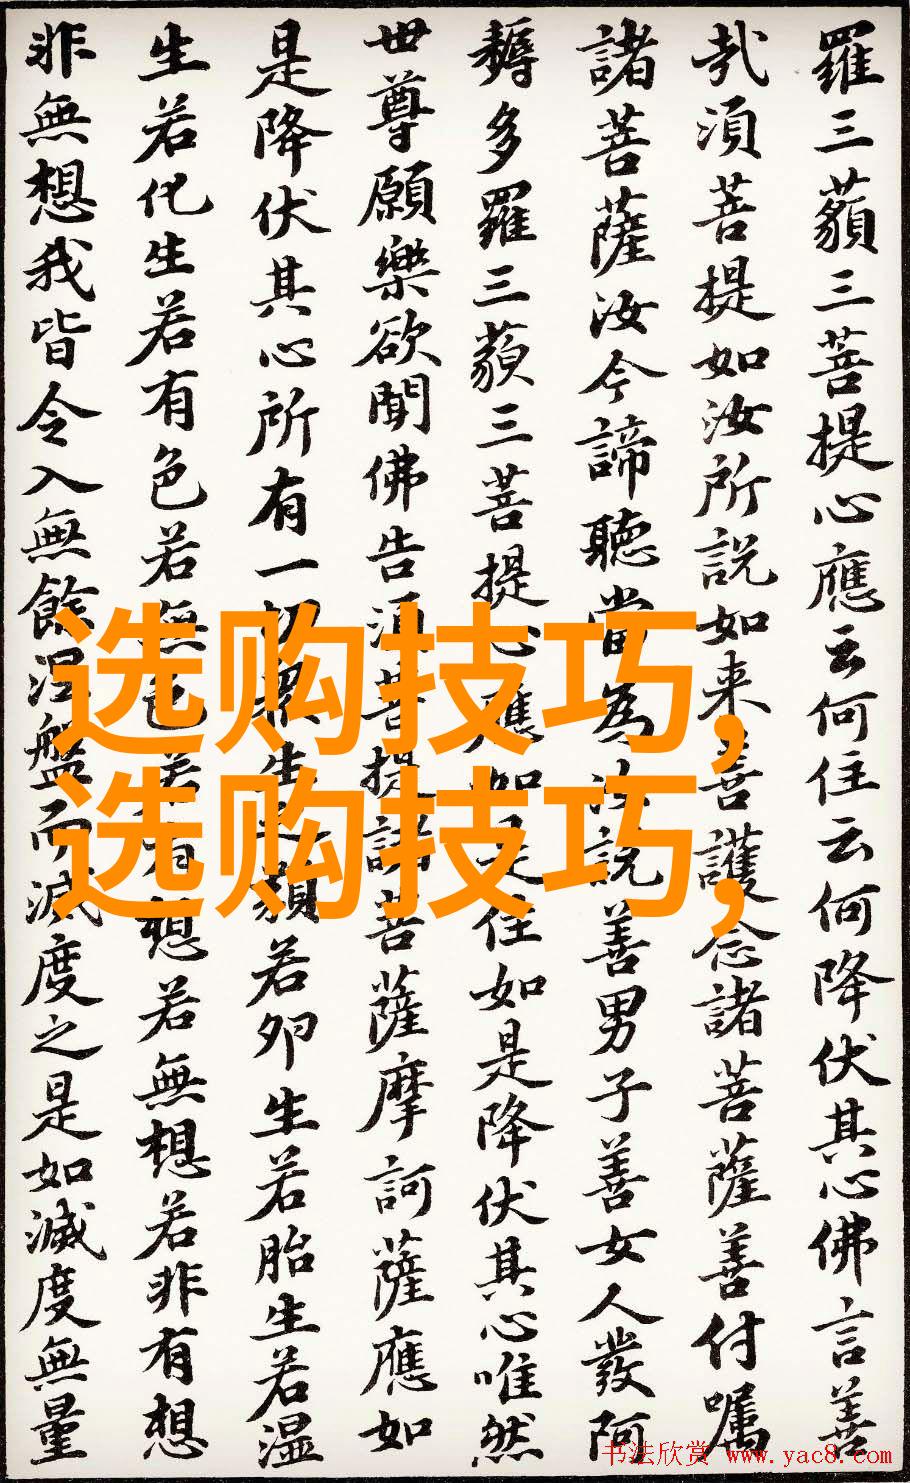 羅三藐三菩提心應云何住云何降伏其心佛言善
哉須菩提如汝所說如来善護念諸菩薩善付囑
諸菩薩汝今諦聽當為汝說善男子善女人發阿
耨多羅三藐三菩提心應如是住如是降伏其心唯然
世尊願樂欲聞佛告須菩提諸菩薩摩訶薩應如
是降伏其心所有一切眾生之類若卵生若胎生若濕
生若化生若有色若無色若有想若無想若非有想
非無想我皆令入無餘涅盤而滅度之是如滅度無量
选购技巧,
选购技巧,
书法欣赏 www.yac8.com